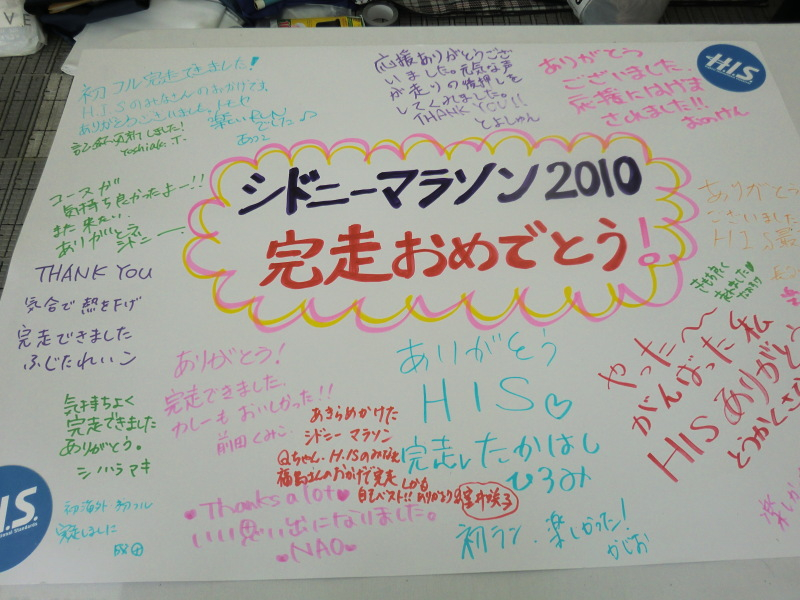 初フル完走できました!
HISのみなさんのおかげです。
ありがとうございました。トモヤ
記録更新しました!
Yoshiaki.T.
楽しい
でした♪
あつこ
応援ありがとうござ
いました。元気な声
が走りの後押しを
してくれました。
THANK YOU!!
とよしゅん
ありがとう
ございました。
応援にはげま
されました!!
H.I.S.
シドニーマラソン2010
完走おめでとう!
コースが
気持ち良かったよー!!
また来たい
ありがとう
シドニー
THANK YOU
気合で熱を下げ
完走できました
ふじたれいこ
ありがとう
ございました
HIS最
きもち良く
走れました♡
ありがとう!
完走できました。
カレーもおいしかった!!
前田くみこ
ありがとう
HIS♡
完走したかはし
ひろみ
やった〜
がんばった私
HISありがとう
気持ちよく
完走できました
ありがとう。
シノハラマキ
あきらめかけた
シドニーマラソン
Qちゃん・H.I.Sのみなと
福島さんのおかげで完走
しかも
自己ベスト!!ありがとう
I.S.
初海外 初フル
完走しました
♥Thanks a lot♥
いい思い出になりました。
♥NAO♥
初ラン、楽しかった!
かじお
楽しかっ